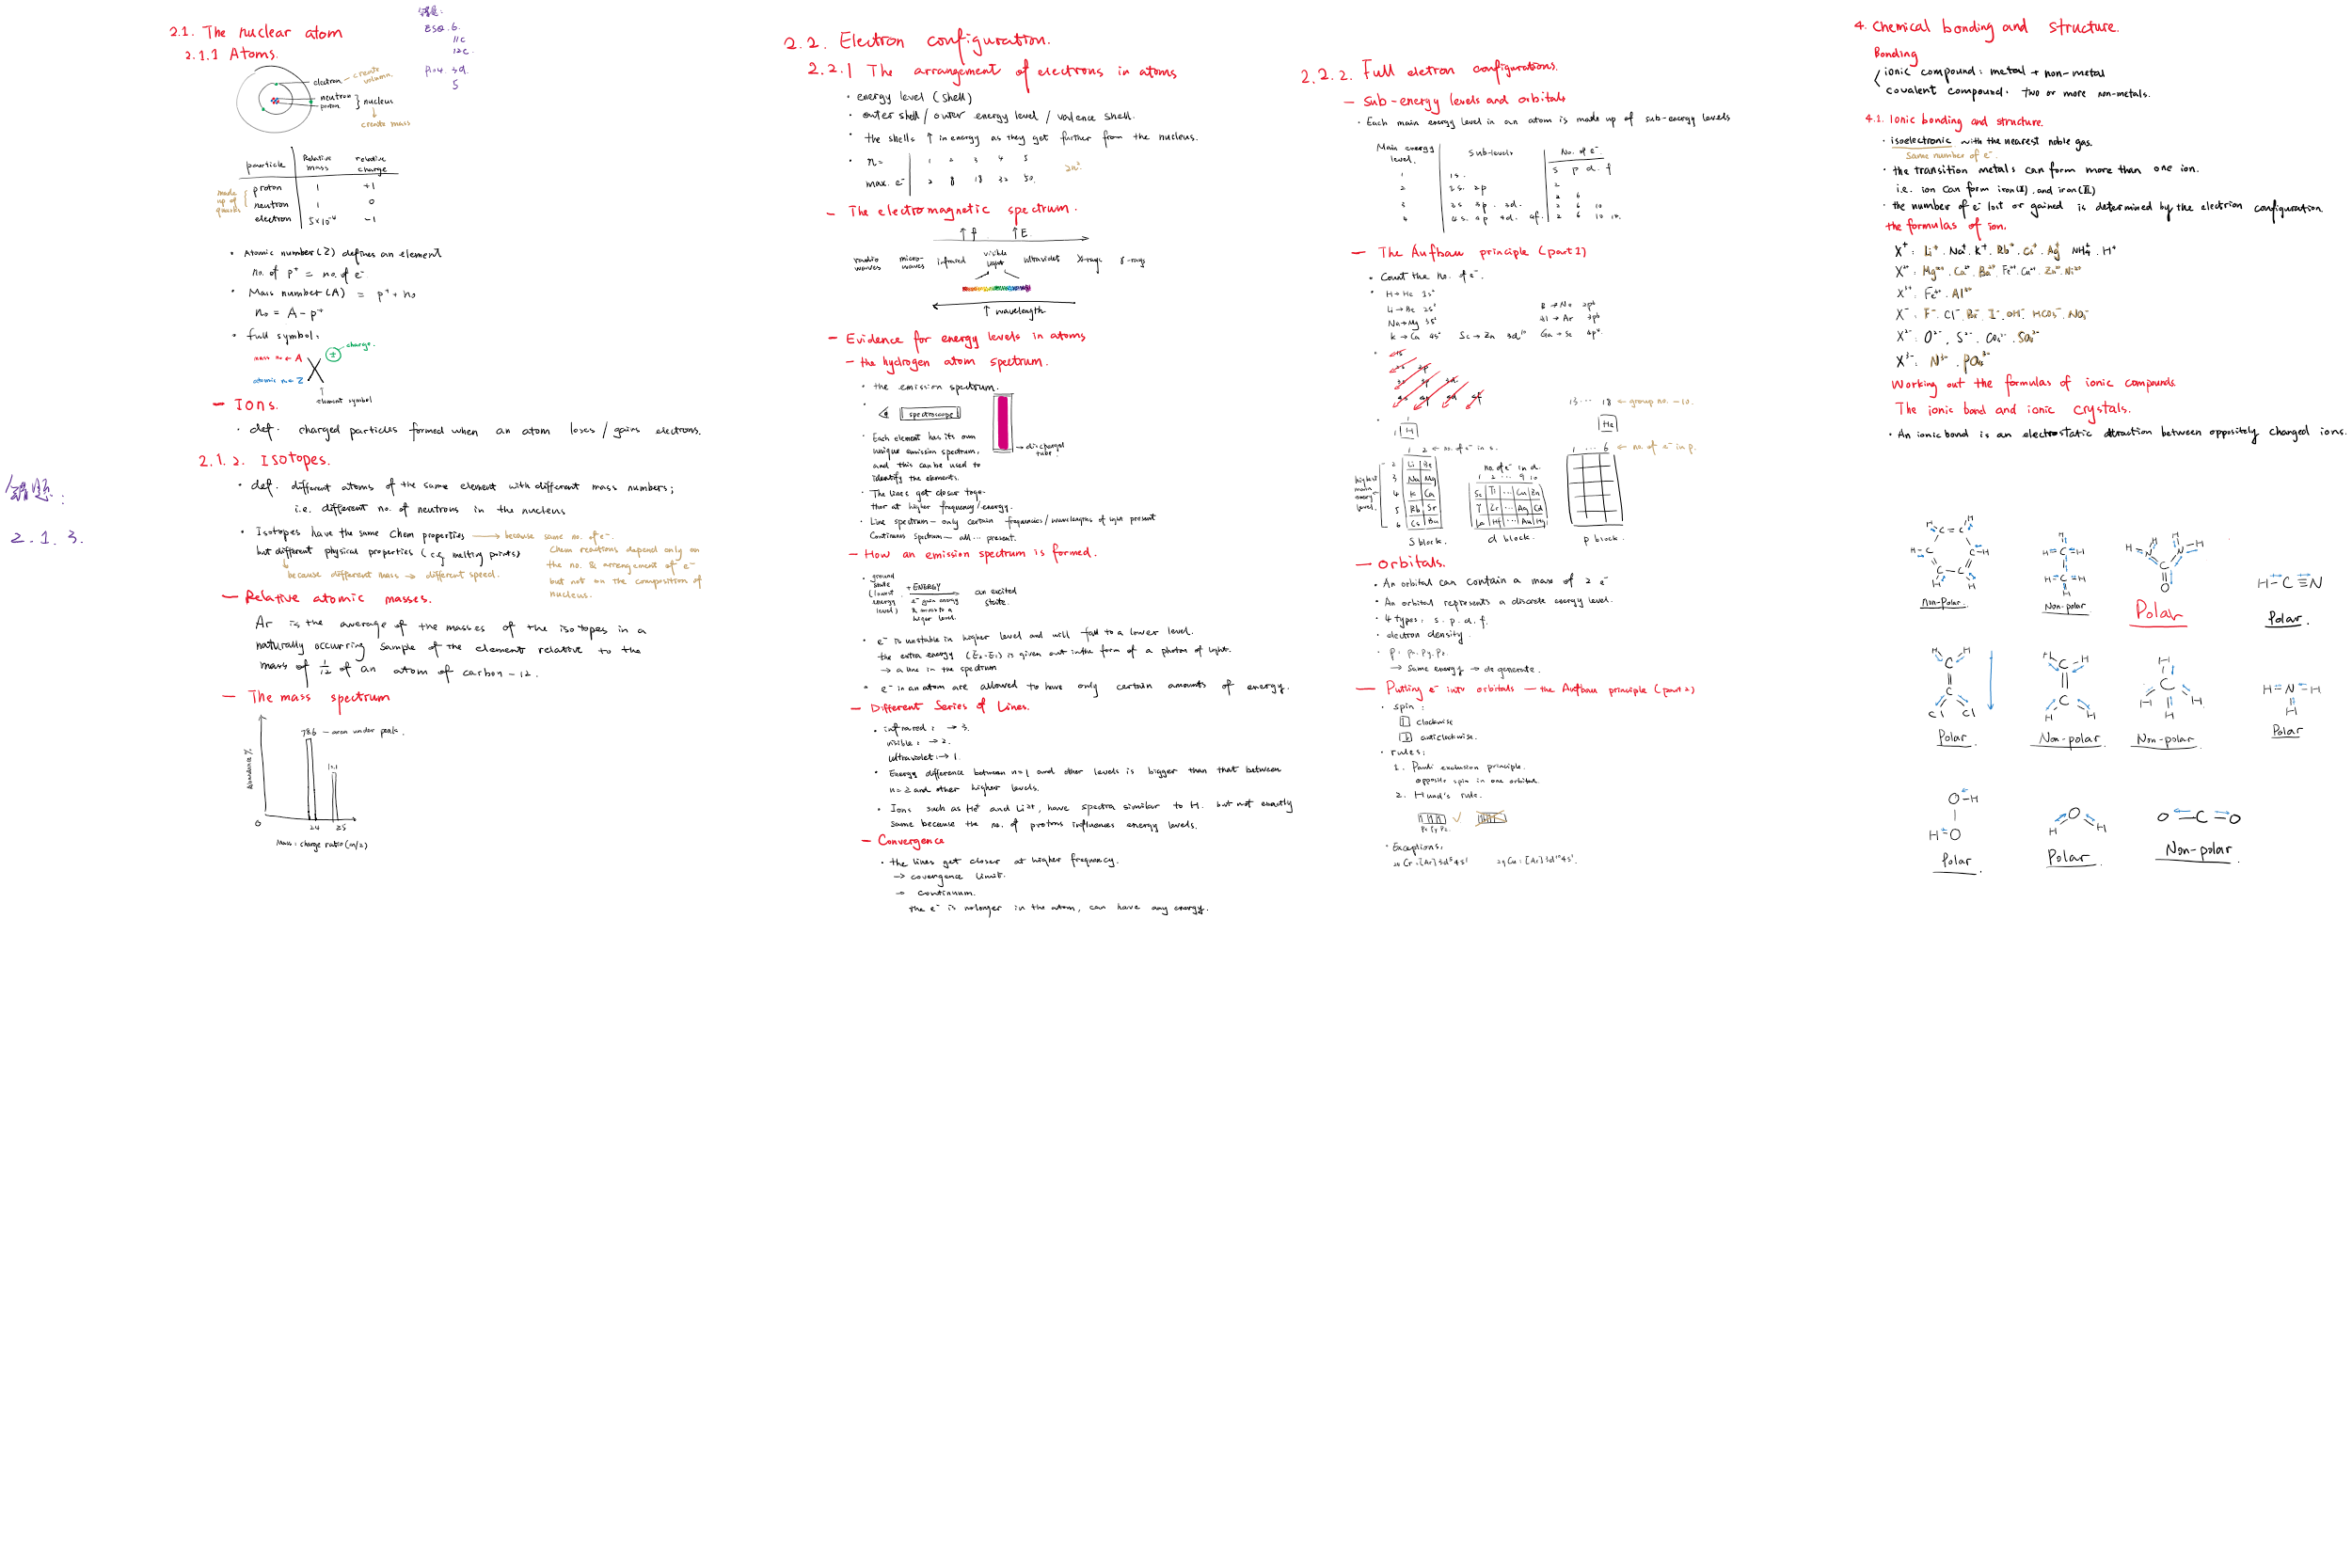 2.1. The nuclear atom
2.1.1 Atoms.
错题:
ESQ. 6.
11c
12c.
5
electron - create volumn.
neutron
proton
} nucleus
↓
create mass
particle Relative mass relative charge
made up of quarks { proton 1 +1
neutron 1 0
electron 5×10⁻⁴ -1
· Atomic number (Z) defines an element
no. of p⁺ = no. of e⁻
· Mass number (A) = p⁺ + n₀
n₀ = A - p⁺
· full symbol:
mass no ← A + charge.
X
atomic n ← Z
↑
element symbol
- Ions.
· def. charged particles formed when an atom loses / gains electrons.
2.1.2. Isotopes.
· def. different atoms of the same element with different mass numbers;
i.e. different no. of neutrons in the nucleus
· Isotopes have the same chem properties → because same no. of e⁻.
but different physical properties (e.g. melting points)
because different mass → different speed.
Chem reactions depend only on
the no. & arrangement of e⁻
but not on the composition of
nucleus.
错题:
2.1.3.
- Relative atomic masses.
Ar is the average of the masses of the isotopes in a
naturally occurring sample of the element relative to the
mass of 1/12 of an atom of carbon-12.
- The mass spectrum
78.6 - area under peak.
10.1
Abundance %
0 24 25
Mass : charge ratio (m/z)
2.2. Electron configuration.
2.2.1 The arrangement of electrons in atoms
· energy level (shell)
· outer shell / outer energy level / valence shell.
· the shells ↑ in energy as they get further from the nucleus.
· n= 1 2 3 4 5
max. e⁻ 2 8 18 32 50. 2n²
- The electromagnetic spectrum.
↑ f ↑ E.
radio waves micro-waves infrared visible light ultraviolet X-rays γ-rays
↑ wavelength
- Evidence for energy levels in atoms
- the hydrogen atom spectrum.
· the emission spectrum.
spectroscope
→ discharged tube.
· Each element has its own
unique emission spectrum,
and this can be used to
identify the elements.
· The lines get closer toge-
ther at higher frequency/energy.
· Line spectrum - only certain frequencies / wavelengths of light present
Continuous spectrum - all ... present.
- How an emission spectrum is formed.
· ground state (lowest energy level) +ENERGY → an excited state.
e⁻ gain energy & moves to a higer level.
· e⁻ is unstable in higher level and will fall to a lower level.
the extra energy (E₂-E₁) is given out in the form of a photon of light.
→ a line in the spectrum
· e⁻ in an atom are allowed to have only certain amounts of energy.
- Different Series of Lines.
· infrared : → 3.
visible : → 2.
ultraviolet : → 1.
· Energy difference between n=1 and other levels is bigger than that between
n=2 and other higher levels.
· Ions such as He⁺ and Li²⁺, have spectra similar to H. but not exactly
same because the no. of protons influences energy levels.
- Convergence
· the lines get closer at higher frequency.
→ covergence limit.
→ continuum.
the e⁻ is no longer in the atom, can have any energy.
2.2.2. Full eletron configurations.
- Sub-energy levels and orbitals
· Each main energy level in an atom is made up of sub-energy levels
Main energy level. Sub-levels No. of e⁻.
s p d f
1 1s. 2
2 2s. 2p 2 6
3 3s 3p. 3d. 2 6 10
4 4s. 4p 4d. 4f. 2 6 10
- The Aufbau principle (part 1)
· Count the no. of e⁻.
· H→He 1s²
Li→Be 2s² B → Ne 2p⁶
Na→Mg 3s² Al → Ar 3p⁶
K → Ca 4s² Sc → Zn 3d¹⁰ Ga → Se 4p⁴
13 ... 18 ← group no. -10.
1 H He
1 2 ← no. of e⁻ in s. 1 ... 6 ← no. of e⁻ in p.
highest main energy level.
no. of e⁻ in d.
1 2 ... 9 10
2 Li Be
3 Na Mg
4 K Ca Sc Ti ... Cu Zn
5 Rb Sr Y Zr ... Ag Cd
6 Cs Ba La Hf ... Au Hg
s block. d block. p block.
- Orbitals.
· An orbital can contain a max of 2 e⁻
· An orbital represents a discrete energy level.
· 4 types: s. p. d. f.
· electron density.
· p: px. py. pz.
→ same energy → degenerate.
- Putting e⁻ into orbitals - the Aufbau principle (part 2)
· spin :
clockwise
anticlockwise.
· rules:
1. Pauli exclusion principle.
opposite spin in one orbital.
2. Hund's rule.
Px Py Pz
· Exceptions:
24 Cr : [Ar] 3d⁵ 4s¹ 29 Cu : [Ar] 3d¹⁰ 4s¹.
4. Chemical bonding and structure.
Bonding
ionic compound: metal + non-metal
covalent compound. two or more non-metals.
4.1. Ionic bonding and structure.
· isoelectronic with the nearest noble gas.
Same number of e⁻.
· the transition metals can form more than one ion.
i.e. ion can form iron(II). and iron(III)
· the number of e⁻ lost or gained is determined by the electrion configuration.
the formulas of ion.
X⁺: Li⁺. Na⁺. K⁺. Rb⁺. Cs⁺. Ag⁺ NH₄⁺. H⁺
X²⁺: Mg²⁺. Ca²⁺. Ba²⁺. Fe²⁺. Cu²⁺. Zn²⁺. Ni²⁺
X³⁺: Fe³⁺. Al³⁺
X⁻: F⁻. Cl⁻. Br⁻. I⁻. OH⁻. HCO₃⁻. NO₃⁻
X²⁻: O²⁻. S²⁻. CO₃²⁻. SO₄²⁻
X³⁻: N³⁻. PO₄³⁻
Working out the formulas of ionic compounds.
The ionic bond and ionic crystals.
· An ionic bond is an electrostatic attraction between oppositely charged ions.
Non-Polar.
Non-polar
Polar
H-C≡N
Polar.
Polar.
Non-polar.
Non-polar.
Polar
Polar.
Polar.
O=C=O
Non-polar.